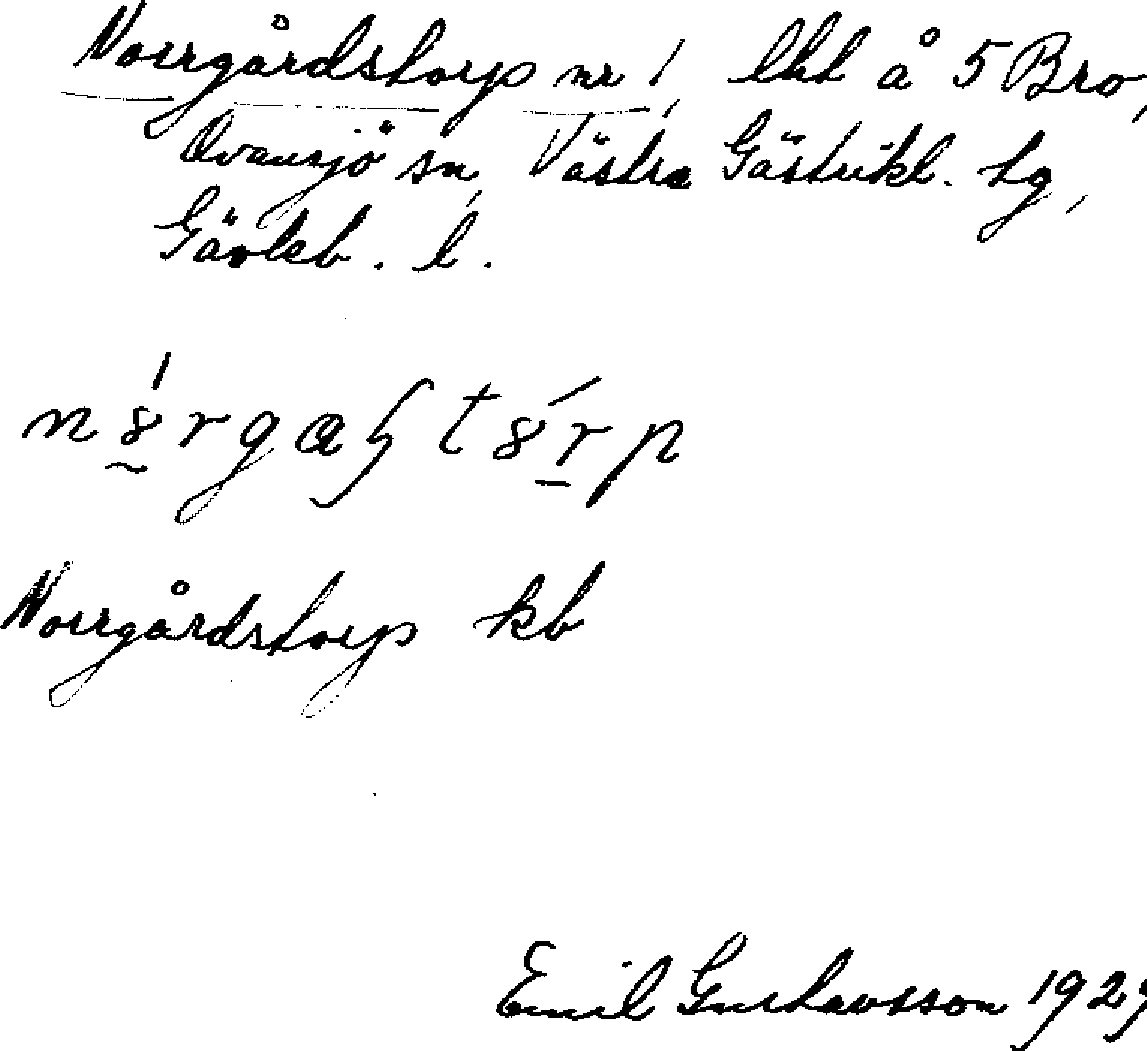 Norrgårdstorp nr 1, lht å 5 Bro,
Ovansjö sn, Västra Gästrikl. tg,
Gävleb. l.
Norrgårdstorp kb
Emil Gustavsson